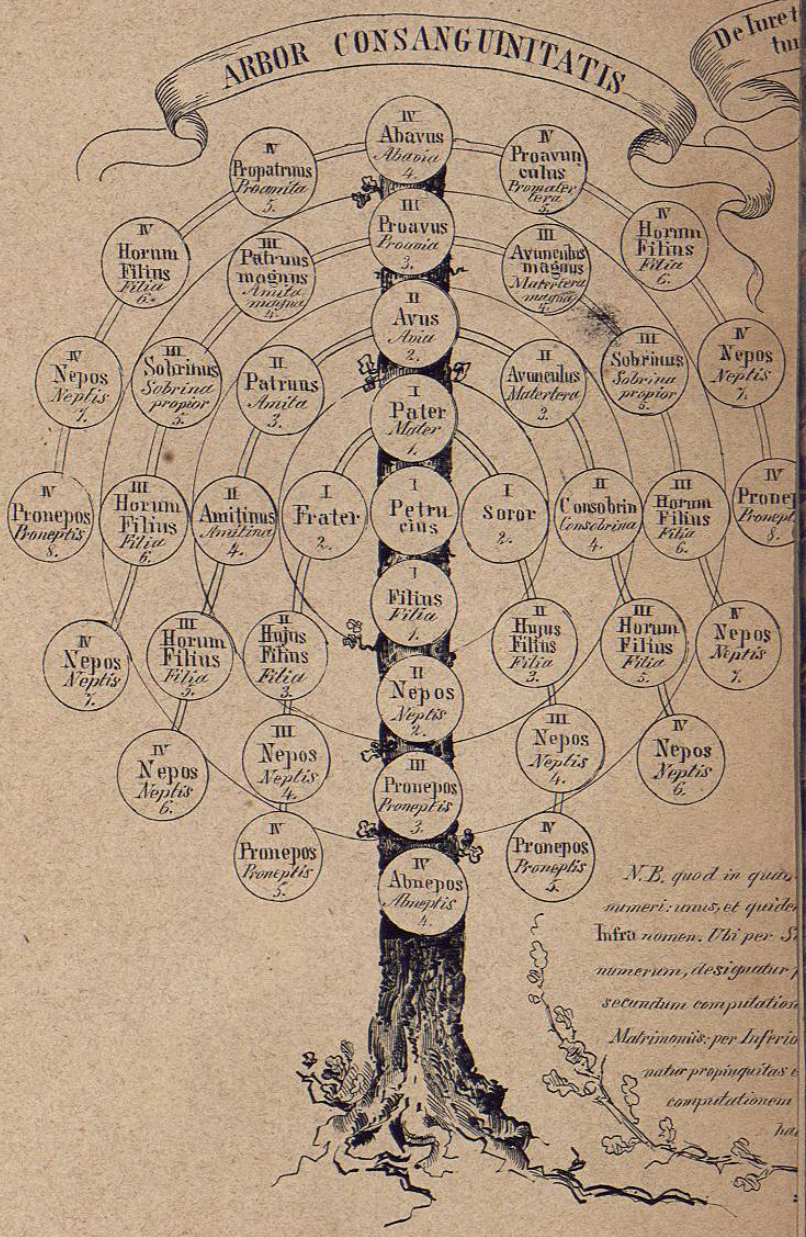 ARBOR CONSANGUINITATIS
De Iure
IV
Abavus
Abavia
4.
IV
Propatruus
Proamita
5.
IV
Proavun
culus
Promater
tera
5.
III
Proavus
Proavia
3.
IV
Horum
Filius
Filia
6.
III
Patruus
magnus
Amita
magna
4.
III
Avunculus
magnus
Matertera
magna
4.
IV
Horum
Filius
Filia
6.
II
Avus
Avia
2.
IV
Nepos
Neptis
7.
III
Sobrinus
Sobrina
propior
5.
II
Patruus
Amita
3.
I
Pater
Mater
1.
II
Avunculus
Matertera
3.
III
Sobrinus
Sobrina
propior
5.
IV
Nepos
Neptis
7.
IV
Pronepos
Proneptis
8.
III
Horum
Filius
Filia
6.
II
Amitinus
Amitina
4.
I
Frater
2.
I
Petru
cius
I
Soror
2.
II
Consobrin
Consobrina
4.
III
Horum
Filius
Filia
6.
IV
Pronep
Pronept
8.
I
Filius
Filia
1.
IV
Nepos
Neptis
7.
III
Horum
Filius
Filia
5.
II
Hujus
Filius
Filia
3.
II
Hujus
Filius
Filia
3.
III
Horum
Filius
Filia
5.
IV
Nepos
Neptis
7.
II
Nepos
Neptis
2.
IV
Nepos
Neptis
6.
III
Nepos
Neptis
4.
III
Nepos
Neptis
4.
IV
Nepos
Neptis
6.
III
Pronepos
Proneptis
3.
IV
Pronepos
Proneptis
5.
IV
Pronepos
Proneptis
5.
IV
Abnepos
Abneptis
4.
N.B. quod in quan
numeri: unus, et quide
Infra nomen. Ubi per
numerum, designatur
secundum computation
Matrimoniis: per Inferio
natur propinquitas
computationem